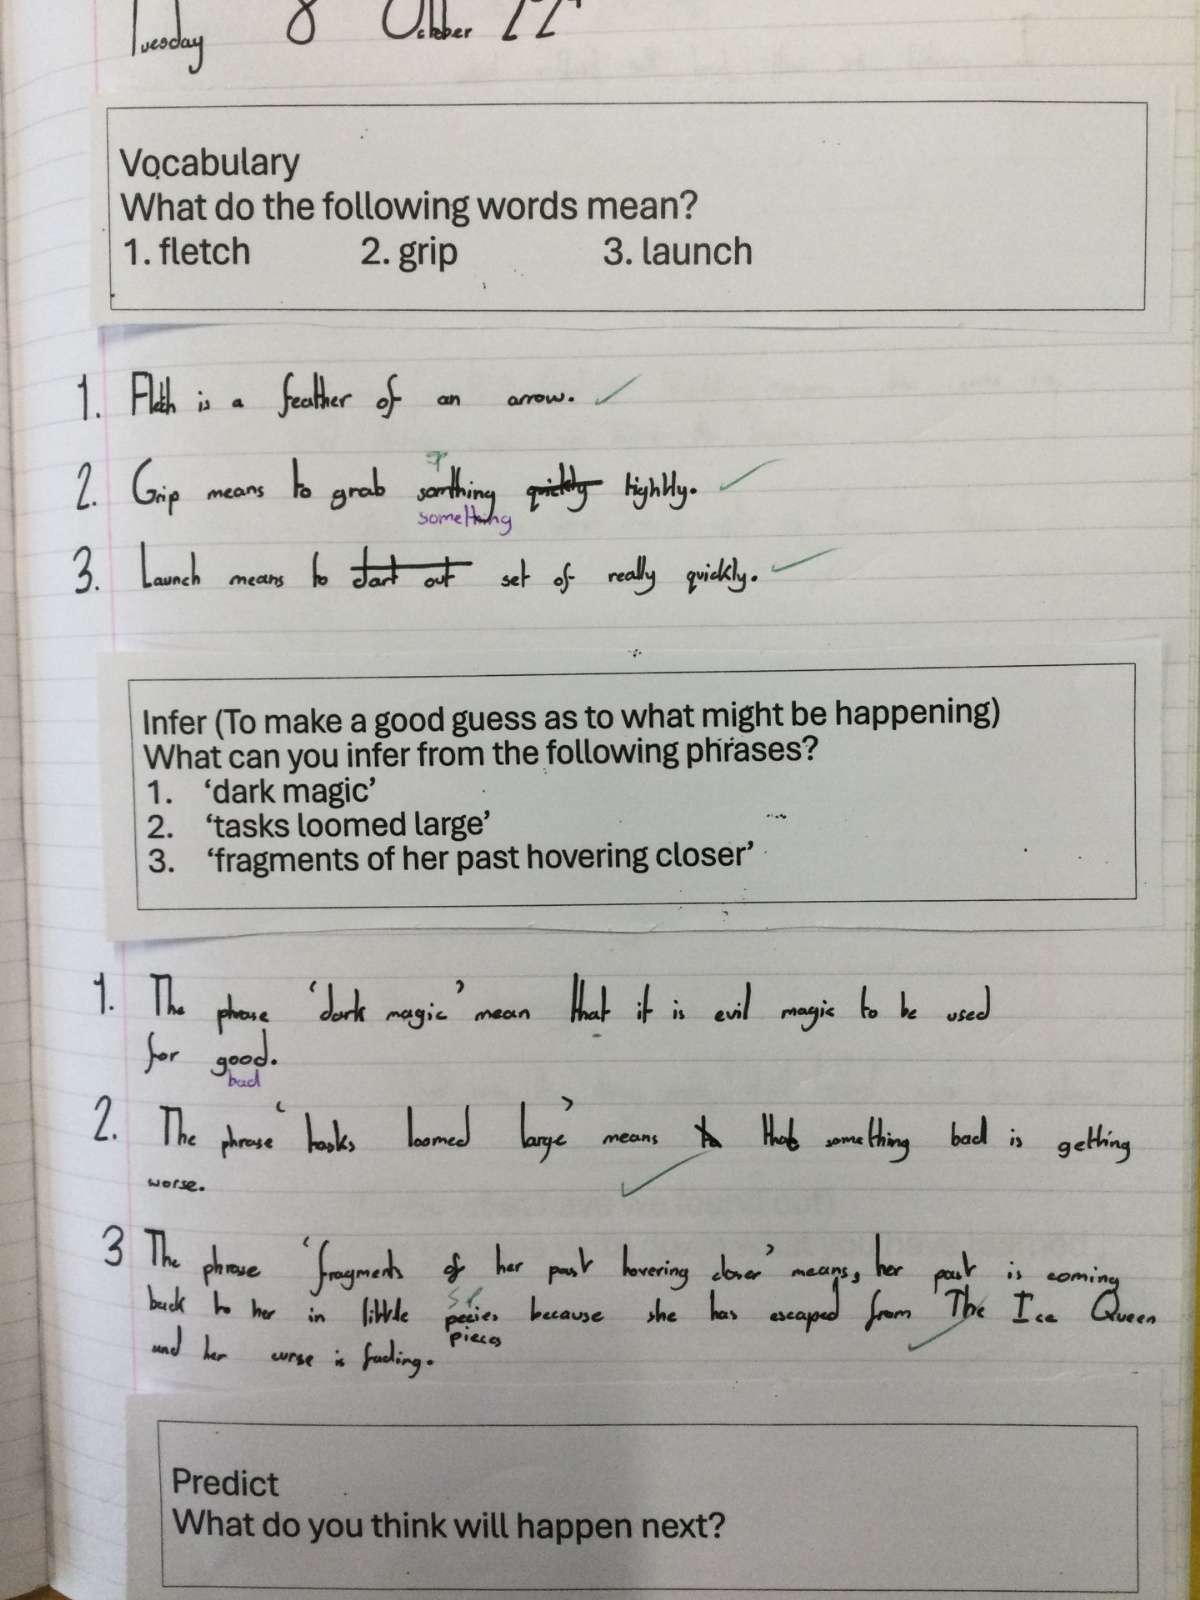 Tuesday 8 October 22nd
Vocabulary
What do the following words mean?
1. fletch 2. grip 3. launch
1. Fleth is a feather of an arrow.
sp
2. Grip means to grab somthing quickly tightly.
something
3. Launch means to dart out set of really quickly.
Infer (To make a good guess as to what might be happening)
What can you infer from the following phrases?
1. ‘dark magic’
2. ‘tasks loomed large’
3. ‘fragments of her past hovering closer’
1. The phrase ‘dark magic’ mean that it is evil magic to be used
for good.
bad
2. The phrase ‘tasks loomed large’ means to that something bad is getting
worse.
3 The phrase ‘fragments of her past hovering closer’ means, her past is coming
sp
back to her in little pecies because she has escaped from The Ice Queen
pieces
and her curse is fading.
Predict
What do you think will happen next?